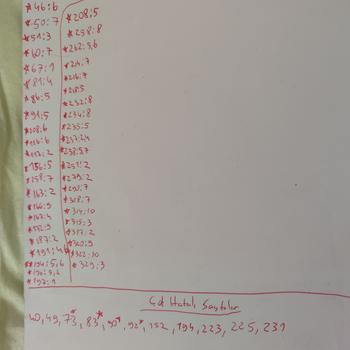 *46:6
*50:7
*51:3
*60:7
*67:1
*81:4
*86:5
*91:5
*108:6
*116:6
*117:2
*156:5
*158:7
*163:2
*166:9
*167:4
*182:9
*187:2
*191:4
*194:5,6
*196:5,6
*197:1
*208:5
*258:8
*262:5,6
*214:7
*216:7
*218:5
*232:8
*234:8
*235:5
*237:2,4
*238:5,7
*251:2
*279:2
*295:7
*308:7
*314:10
*315:3
*317:2
*320:9
*322:10
*329:3
Çok Hatalı Sayfalar
40, 49, 73*, 83*, 90*, 92*, 152, 194, 223, 225, 231